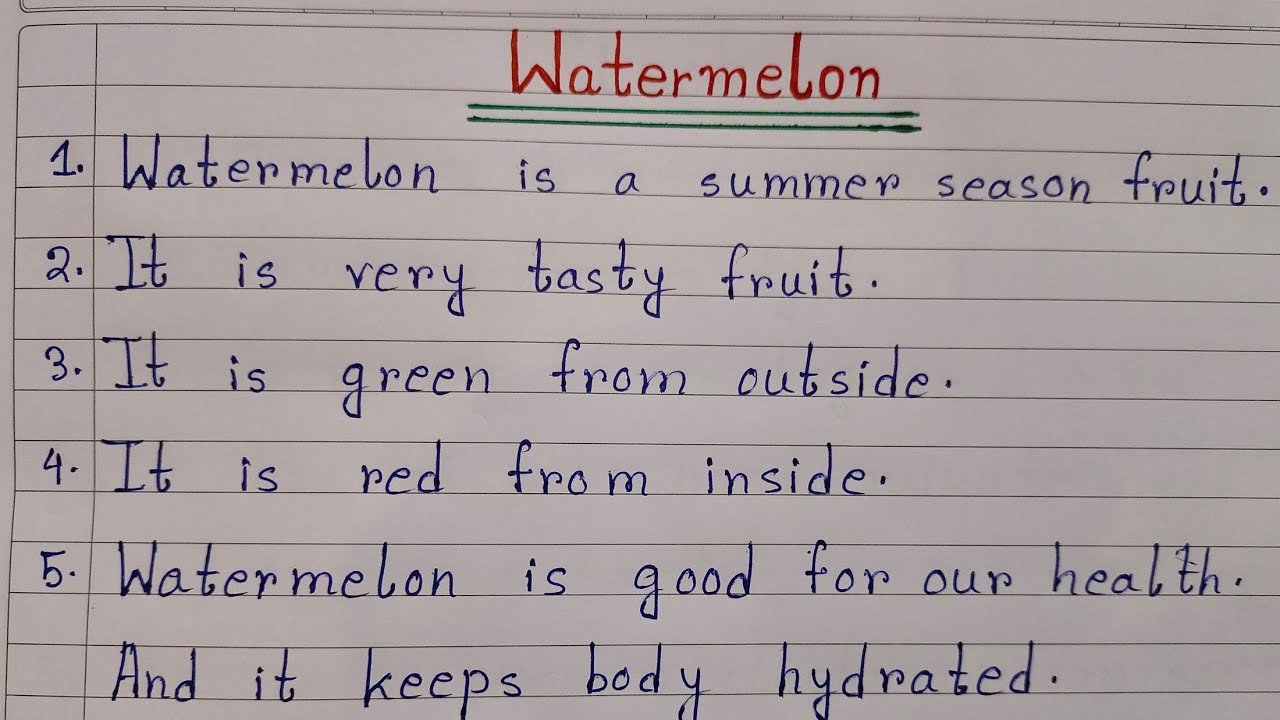 Watermelon
1. Watermelon is a summer season fruit.
2. It is very tasty fruit.
3. It is green from outside.
4. It is red from inside.
5. Watermelon is good for our health.
And it keeps body hydrated.